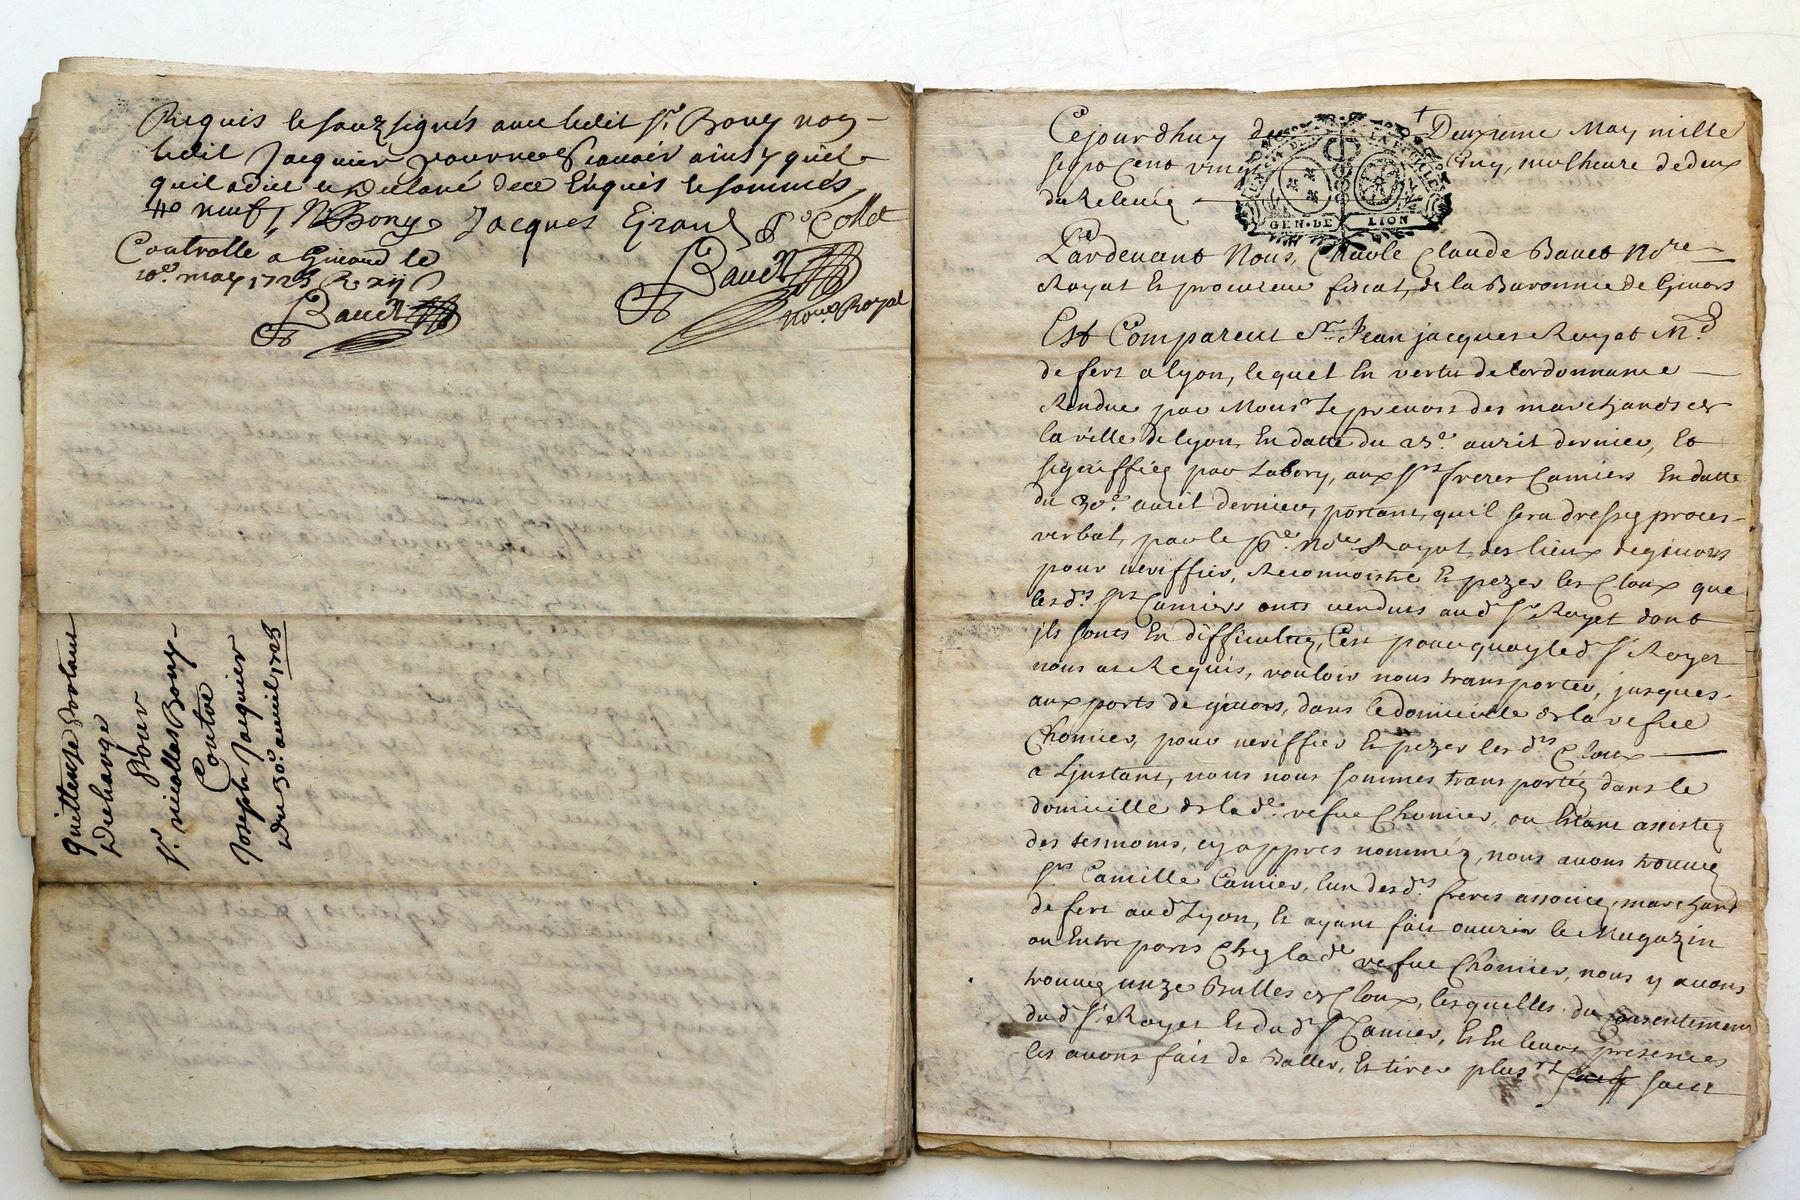 Requis le souzsignés avec ledit Sr. Bony non
ledit Jacquier pour ne sçauoir ainsy quil
quil a dit et declaré de ce Enquis et sommés
neuf, N Bony Jacques Giraud Collet
Controllé a Giuord le
10e. may 1725 R xij s
Baudt
Baudt
Nore. Royal
quittansse portant
décharge
Pour
Sr. nicollas Bony
Contre
Joseph Jacquier
Du 30e. auril 1725
Cejourdhuy Deuxieme May mille
sept Cent vingt Cinq, sur lheure de deux
du Releuée
Pardeuant Nous, Charle Claude Baudt Nore
Royal et procureur fiscal, de la Baronnie de Giuors
Est Comparent Sr. Jean jacques Royet Md.
de fers a lyon, lequel En vertu de lordonnance
Rendue par Monsr Le preuost des marchands de
la ville de lyon, En datte du 23e. auril dernier, Et
signiffiéz par Labory, aux Srs freres Camiers En datte
du 30e. auril dernier, portant, quil sera dressez proces-
verbal, par le pr. Nore Royal, des lieux de giuors
pour veriffier, Reconnoistre Et pezer les Cloux que
les ds. Srs Camiers onts vendus aud. Sr Royet dont
jls sonts En difficultez, C'est pourquoy led. Sr Royet
nous at Requis, vouloir nous transporter, jusques-
aux ports de giuors, dans le domicille de la vefue
Chomier, pour veriffier Et pezer les ds. Cloux
a Ljnstant, nous nous sommes transportéz dans le
domicille de la de. vefue Chomier, ou Estant assistez
des tesmoins, cy apprés nomméz, nous auons trouuez
Srs Camille Camier, lun des ds. freres associez, marchand
de fers aud. Lyon, Et ayant fait ouurir le Magazin
ou Entreporis Chez la de. vefue Chomier, nous y auons
trouuez unze Balles de Cloux, lesquelles du Consentement
dud. Sr. Royet Et dud. Sr Camier, Et En leurs presences
les auons fait de Baller, Et tirer plusrs sacs
GEN. DE LION